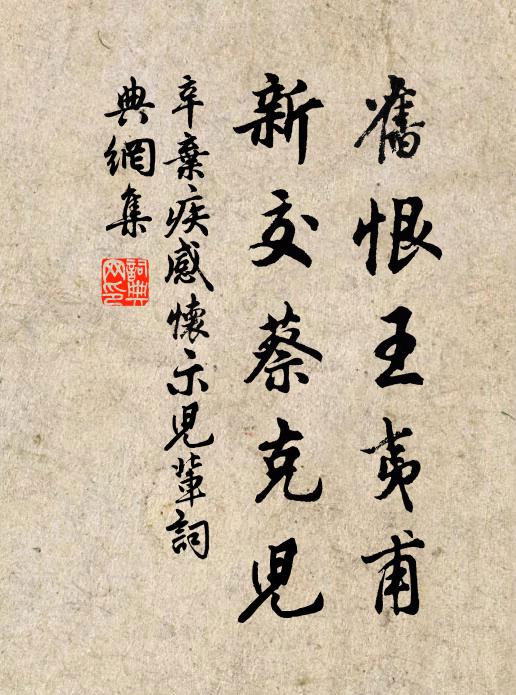 舊恨王夷甫
新交蔡克兒
辛棄疾感懷示兒輩詞
典網集
詞典
网印